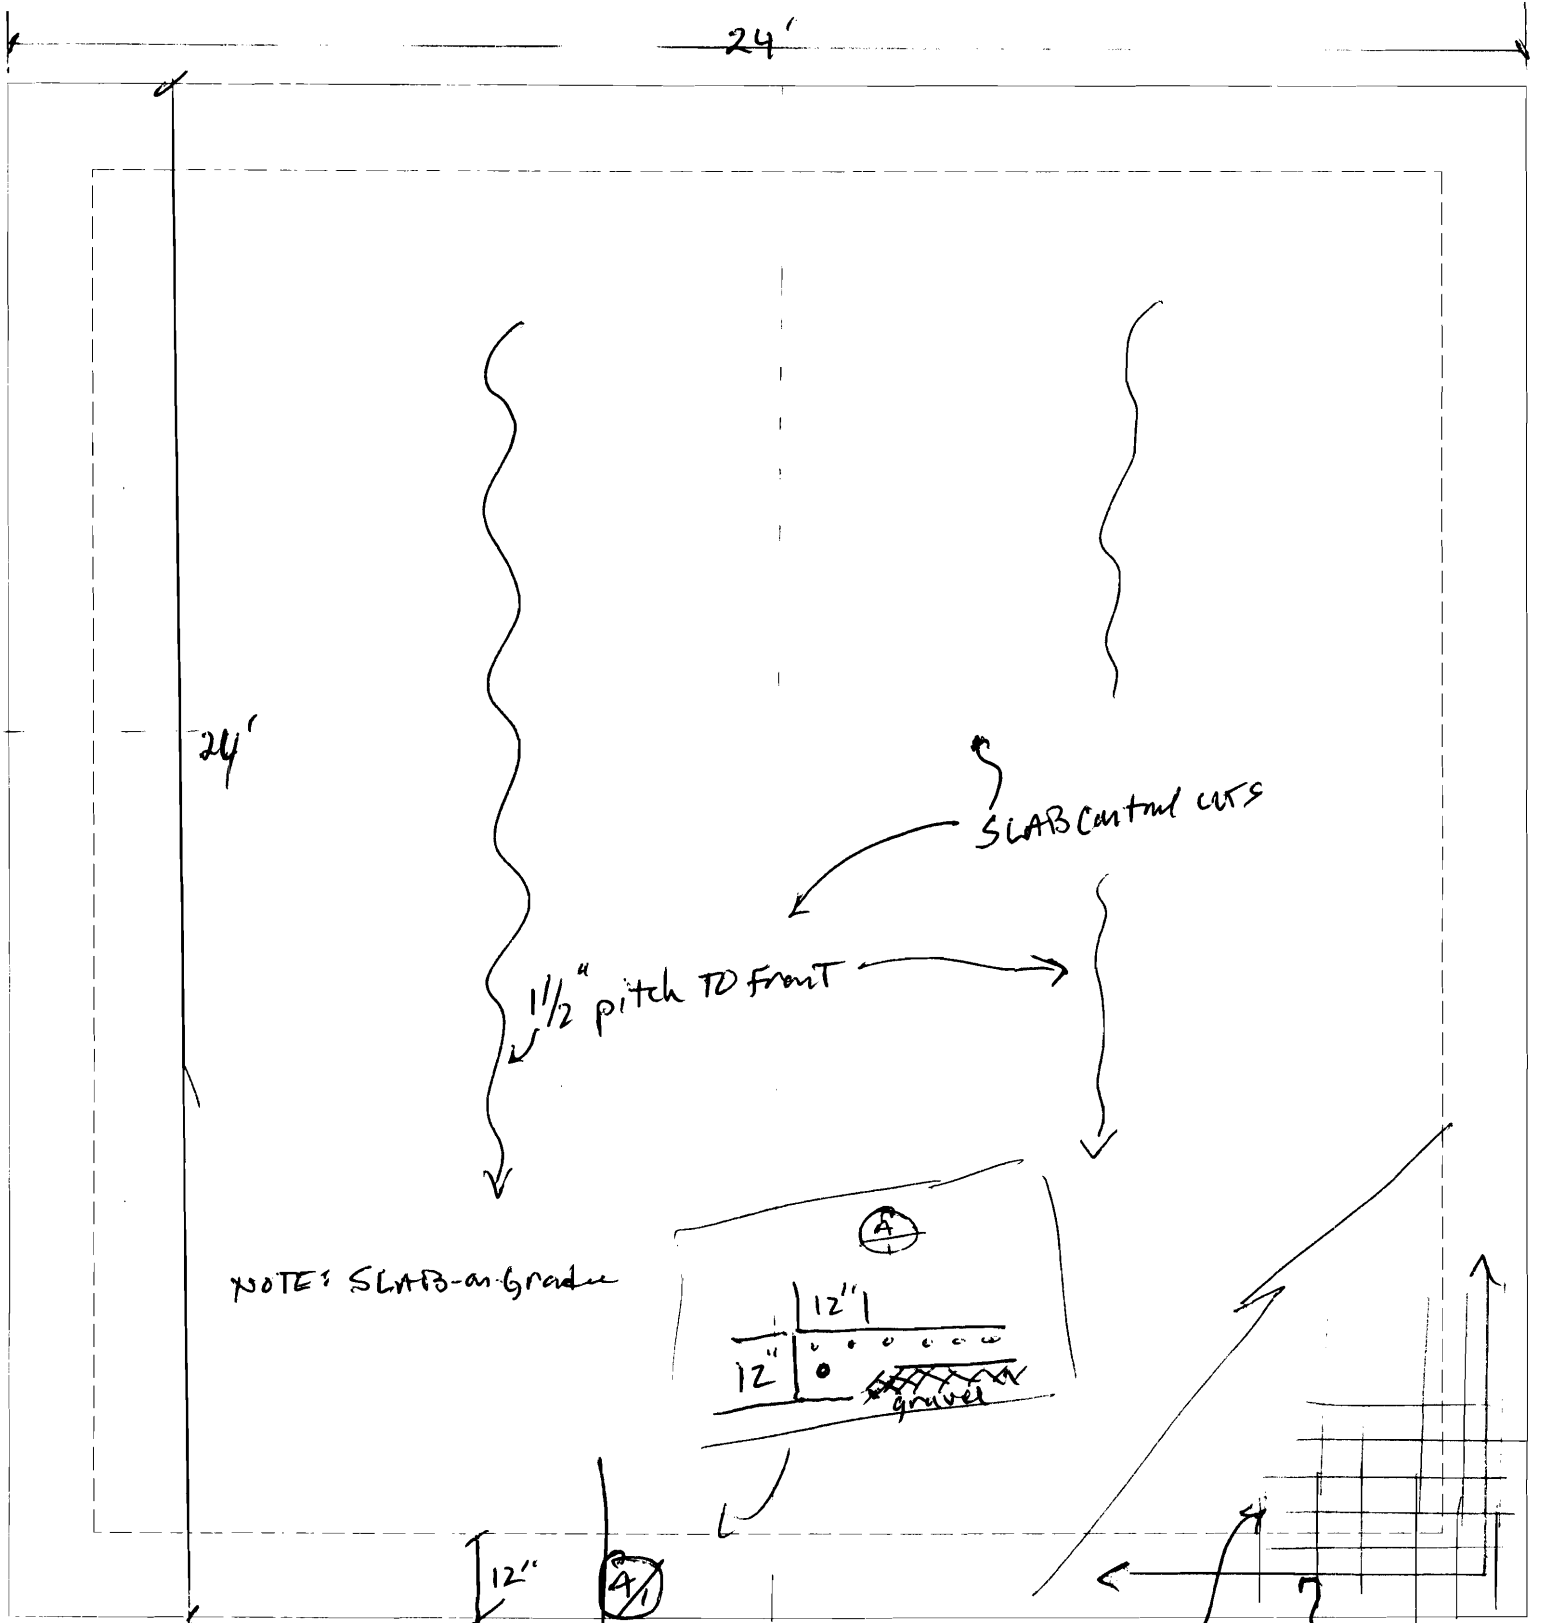 24'
24'
SLAB Control cuts
1 1/2" pitch TO Front
NOTE: SLAB-on-Grade
A
12"
12"
gravel
12"
A/1